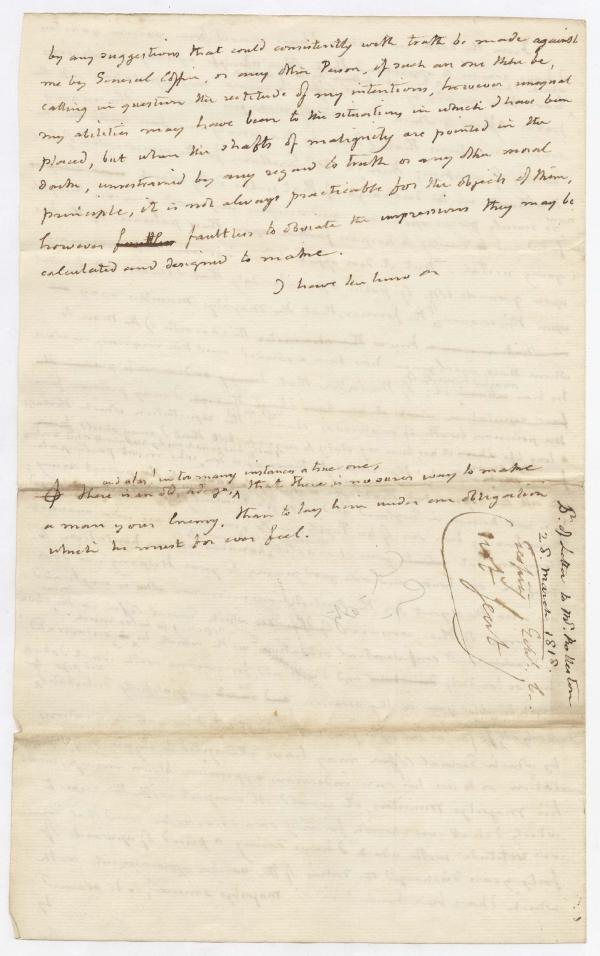 by any suggestions that could consistently with truth be made against
me by General Coffin, or any other Person, if such an one there be,
calling in question the rectitude of my intentions, however unequal
my abilities may have been to the situations in which I have been
placed, but when the shafts of malignity are pointed in the
dark, unrestrained by any regard to truth or any other moral
principle, it is not always practicable for the objects of them,
however faultless to obviate the impressions they may be
calculated and designed to make.
I have the hono or
and alas! in too many instances a true one,
There is an old adage, that there is no surer way to make
a man your Enemy, than to lay him under an obligation
which he must for ever feel.
Dt. of Letter to Mr.
28. March 1818.
not sent